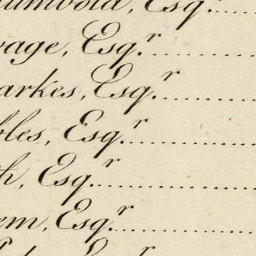 umbold, Esq.r
vage, Esq.r
arkes, Esq.r
bles, Esq.r
th, Esq.r
em, Esq.r
Esq.r